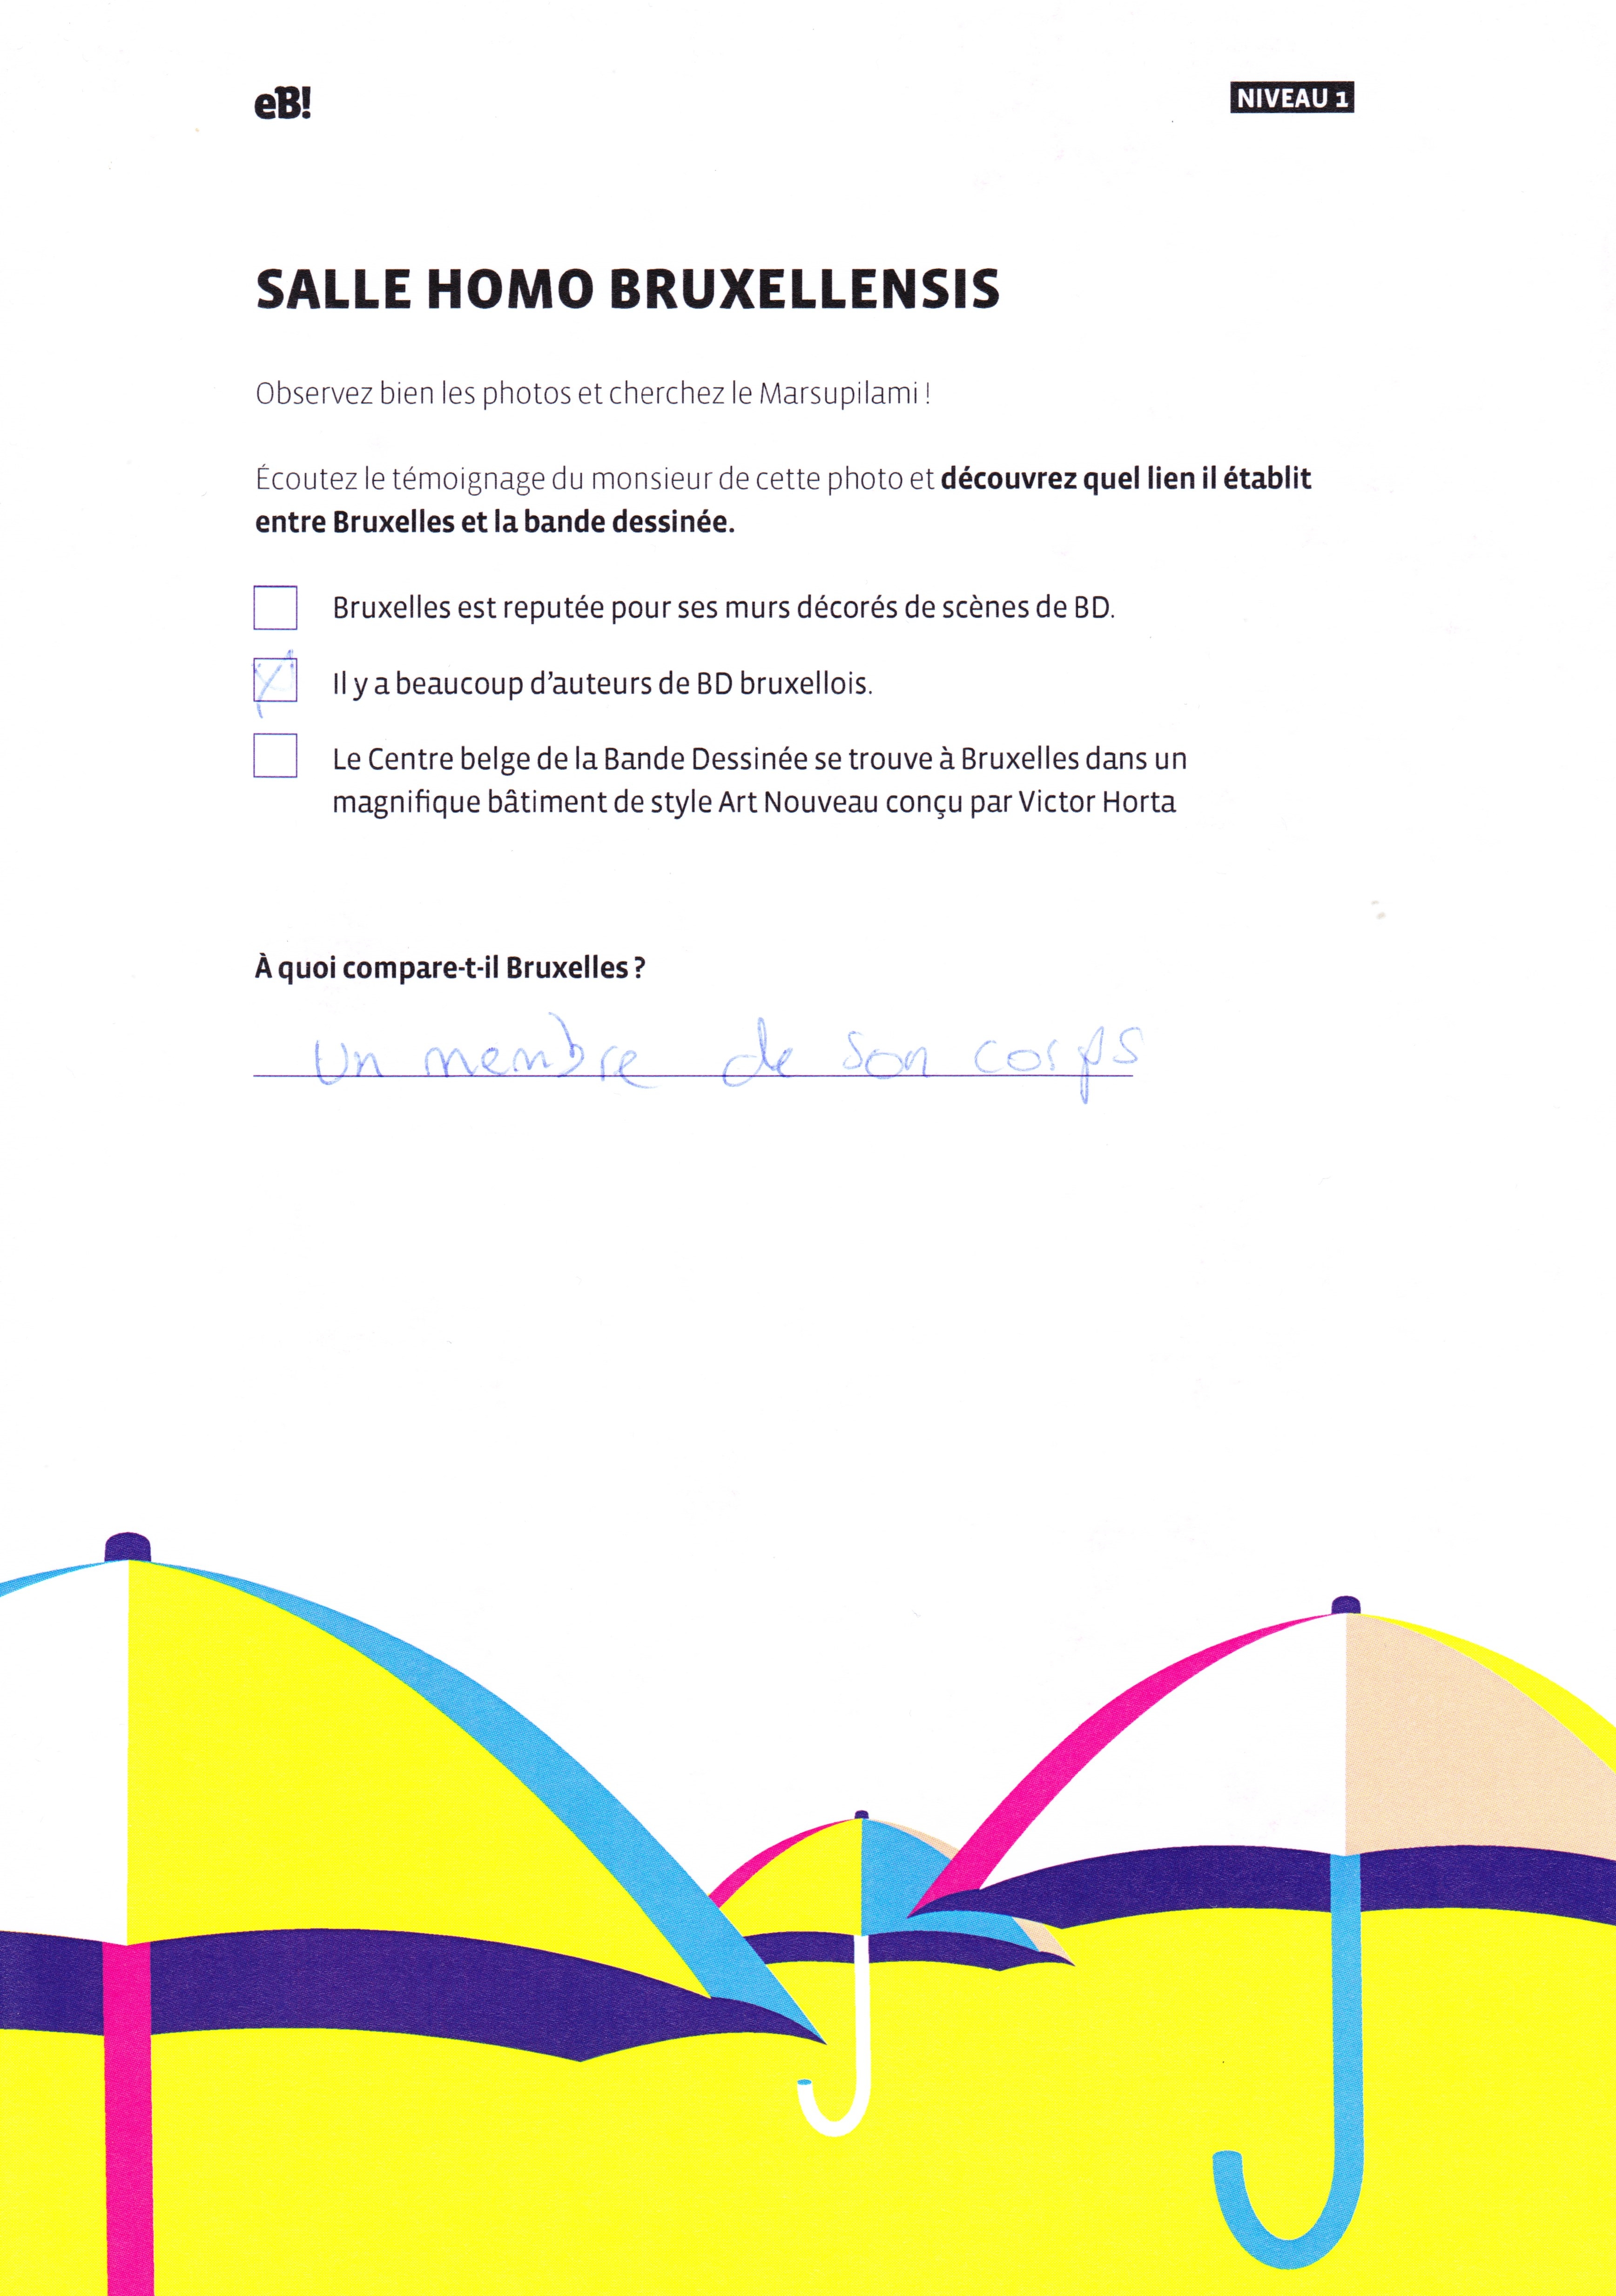 eB!
NIVEAU 1
SALLE HOMO BRUXELLENSIS
Observez bien les photos et cherchez le Marsupilami !
Écoutez le témoignage du monsieur de cette photo et découvrez quel lien il établit
entre Bruxelles et la bande dessinée.
Bruxelles est reputée pour ses murs décorés de scènes de BD.
Il y a beaucoup d'auteurs de BD bruxellois.
Le Centre belge de la Bande Dessinée se trouve à Bruxelles dans un
magnifique bâtiment de style Art Nouveau conçu par Victor Horta
À quoi compare-t-il Bruxelles ?
Un membre de son corps